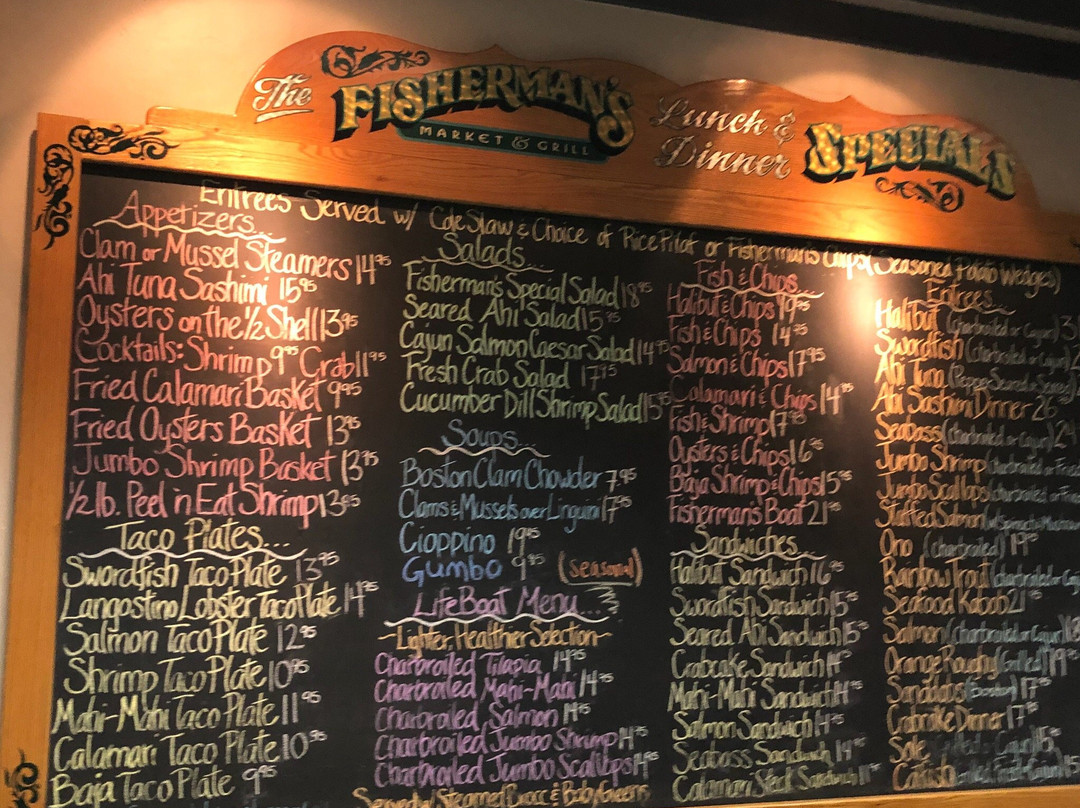 The FISHERMAN'S Lunch & Dinner SPECIALS
MARKET & GRILL
Entrees Served w/ Cole Slaw & Choice of Rice Pilaf or Fisherman's Chips (Seasoned Potato Wedges)
Appetizers...
Clam or Mussel Steamers 14.95
Ahi Tuna Sashimi 15.95
Oysters on the 1/2 Shell 13.95
Cocktails: Shrimp 9.95 Crab 11.95
Fried Calamari Basket 9.95
Fried Oysters Basket 13.95
Jumbo Shrimp Basket 13.95
1/2 lb. Peel n Eat Shrimp 13.95
Taco Plates...
Swordfish Taco Plate 13.95
Langostino Lobster Taco Plate 14.95
Salmon Taco Plate 12.95
Shrimp Taco Plate 10.95
Mahi-Mahi Taco Plate 11.95
Calamari Taco Plate 10.95
Baja Taco Plate 9.95
Salads...
Fisherman's Special Salad 18.95
Seared Ahi Salad 15.95
Cajun Salmon Caesar Salad 14.95
Fresh Crab Salad 17.95
Cucumber Dill Shrimp Salad 15.95
Soups...
Boston Clam Chowder 7.95
Clams & Mussels over Linguini 17.95
Cioppino 19.95
Gumbo 9.95 (seasonal)
Life Boat Menu...
~Lighter, Healthier Selection~
Charbroiled Tilapia 14.95
Charbroiled Mahi-Mahi 14.95
Charbroiled Salmon 14.95
Charbroiled Jumbo Shrimp 14.95
Charbroiled Jumbo Scallops 14.95
Served w/ Steamed Brocc & Baby Greens
Fish & Chips...
Halibut & Chips 19.95
Fish & Chips 14.95
Salmon & Chips 17.95
Calamari & Chips 14.95
Fish & Shrimp 17.95
Oysters & Chips 16.95
Baja Shrimp & Chips 15.95
Fisherman's Boat 21.95
Sandwiches...
Halibut Sandwich 16.95
Swordfish Sandwich 15.95
Seared Ahi Sandwich 15.95
Crabcake Sandwich 14.95
Mahi-Mahi Sandwich 14.95
Salmon Sandwich 14.95
Seabass Sandwich 14.95
Calamari Steak Sandwich 11
Entrees...
Halibut (charbroiled or Cajun)
Swordfish (charbroiled or Cajun)
Ahi Tuna (Pepper Seared or
Ahi Sashimi Dinner 26
Seabass (charbroiled or Cajun) 24
Jumbo Shrimp (charbroiled or Fried
Jumbo Scallops (charbroiled or Fried
Stuffed Salmon (w/ Spinach &
Ono (charbroiled) 19.95
Rainbow Trout (charbroiled or Cajun
Seafood Kabob 21.95
Salmon (charbroiled or Cajun) 18
Orange Roughy (Grilled) 19.95
Sanddabs 17.95
Crabcake Dinner 17.95
Sole Grilled or Cajun 15
Catfish Grilled, Fried or Cajun 15